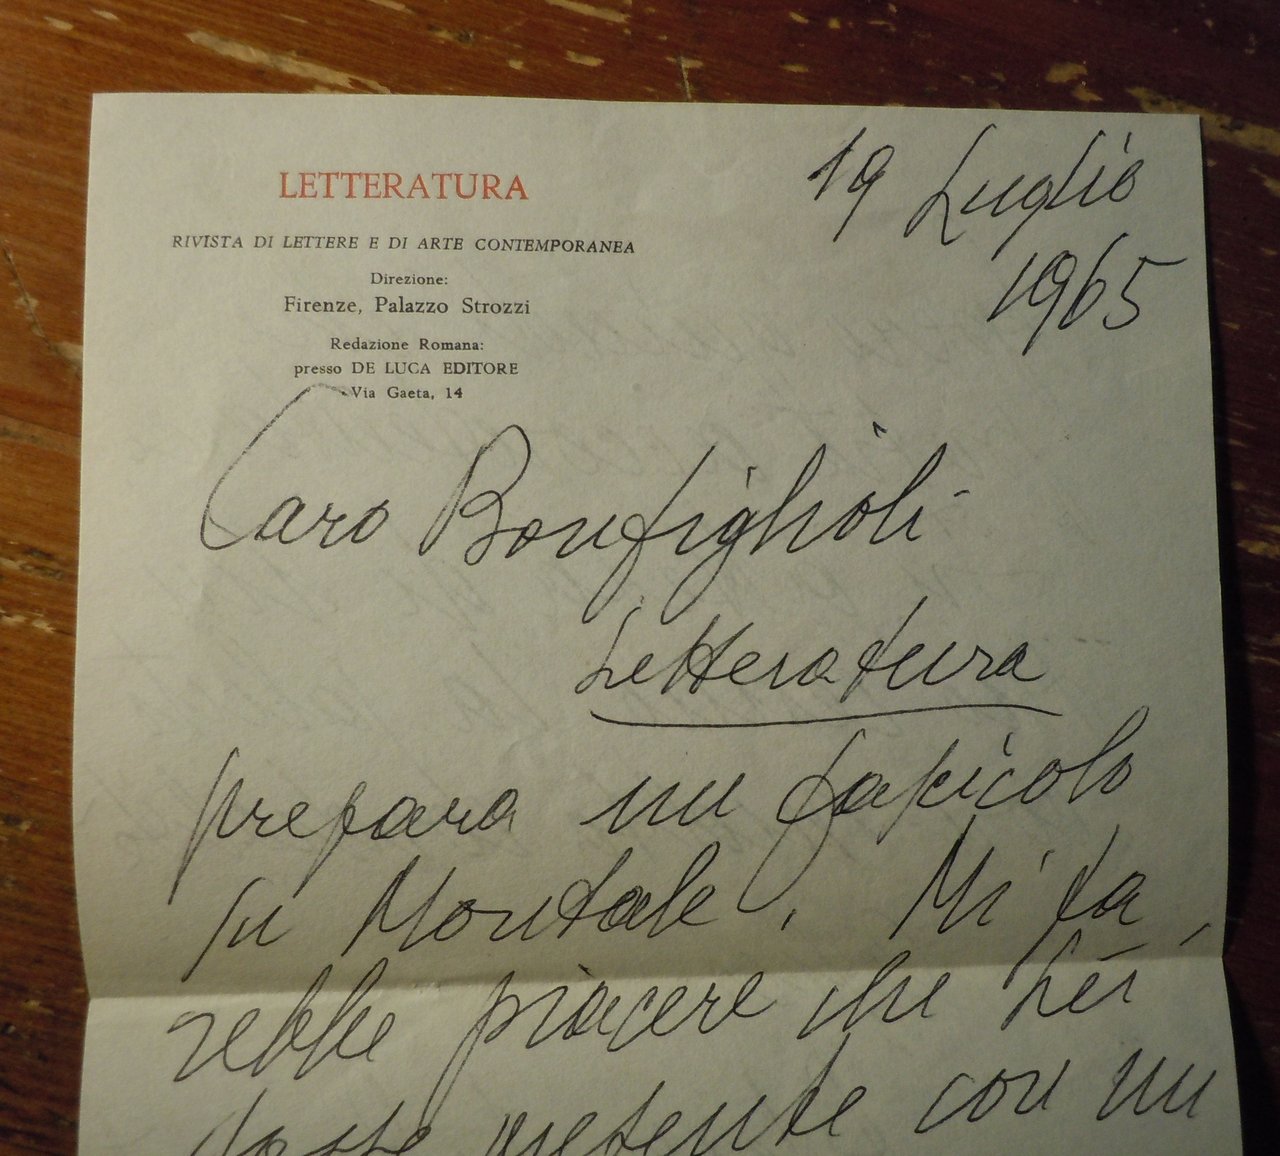 LETTERATURA
RIVISTA DI LETTERE E DI ARTE CONTEMPORANEA
Direzione:
Firenze, Palazzo Strozzi
Redazione Romana:
presso DE LUCA EDITORE
Via Gaeta, 14
19 Luglio
1965
Caro Bonfiglioli -
Letteratura
prepara un fascicolo
su Montale. Mi fa-
rebbe piacere che Lei
fosse presente con un